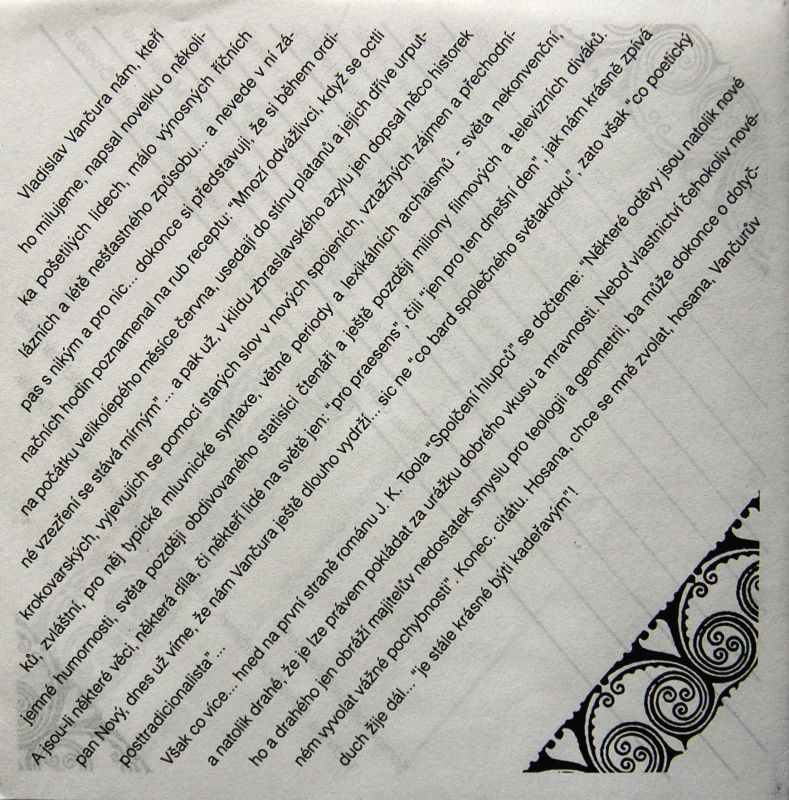 Vladislav Vančura nám, kteří
ho milujeme, napsal novelku o několi-
ka pošetilých lidech, málo výnosných říčních
lázních a létě nešťastného způsobu... a nevede v ní zá-
pas s nikým a pro nic... dokonce si představuji, že si během ordi-
načních hodin poznamenal na rub receptu: "Mnozí odvážlivci, když se octli
na počátku velikolepého měsíce června, usedají do stínu platanů a jejich dříve urput-
né vzezření se stává mírným"... a pak už, v klidu zbraslavského azylu jen dopsal něco historek
krokovarských, vyjevujích se pomocí starých slov v nových spojeních, vztažných zájmen a přechodní-
ků, zvláštní, pro něj typické mluvnické syntaxe, větné periody a lexikálních archaismů - světa nekonvenční,
jemné humornosti, světa později obdivovaného statisíci čtenáři a ještě později miliony filmových a televizních diváků.
A jsou-li některé věci, některá díla, či někteří lidé na světě jen: "pro praesens", čili "jen pro ten dnešní den", jak nám krásně zpívá
pan Nový, dnes už víme, že nám Vančura ještě dlouho vydrží... sic ne "co bard společného světakroku", zato však "co poetický
posttradicionalista"...
Však co více... hned na první straně románu J. K. Toola "Spolčení hlupců" se dočteme: "Některé oděvy jsou natolik nové
a natolik drahé, že je lze právem pokládat za urážku dobrého vkusu a mravnosti. Neboť vlastnictví čehokoliv nové-
ho a drahého jen obráží majitelův nedostatek smyslu pro teologii a geometrii, ba může dokonce o dotyč-
ném vyvolat vážné pochybnosti". Konec. citátu. Hosana, chce se mně zvolat, hosana, Vančurův
duch žije dál..."je stále krásné býti kadeřavým"!